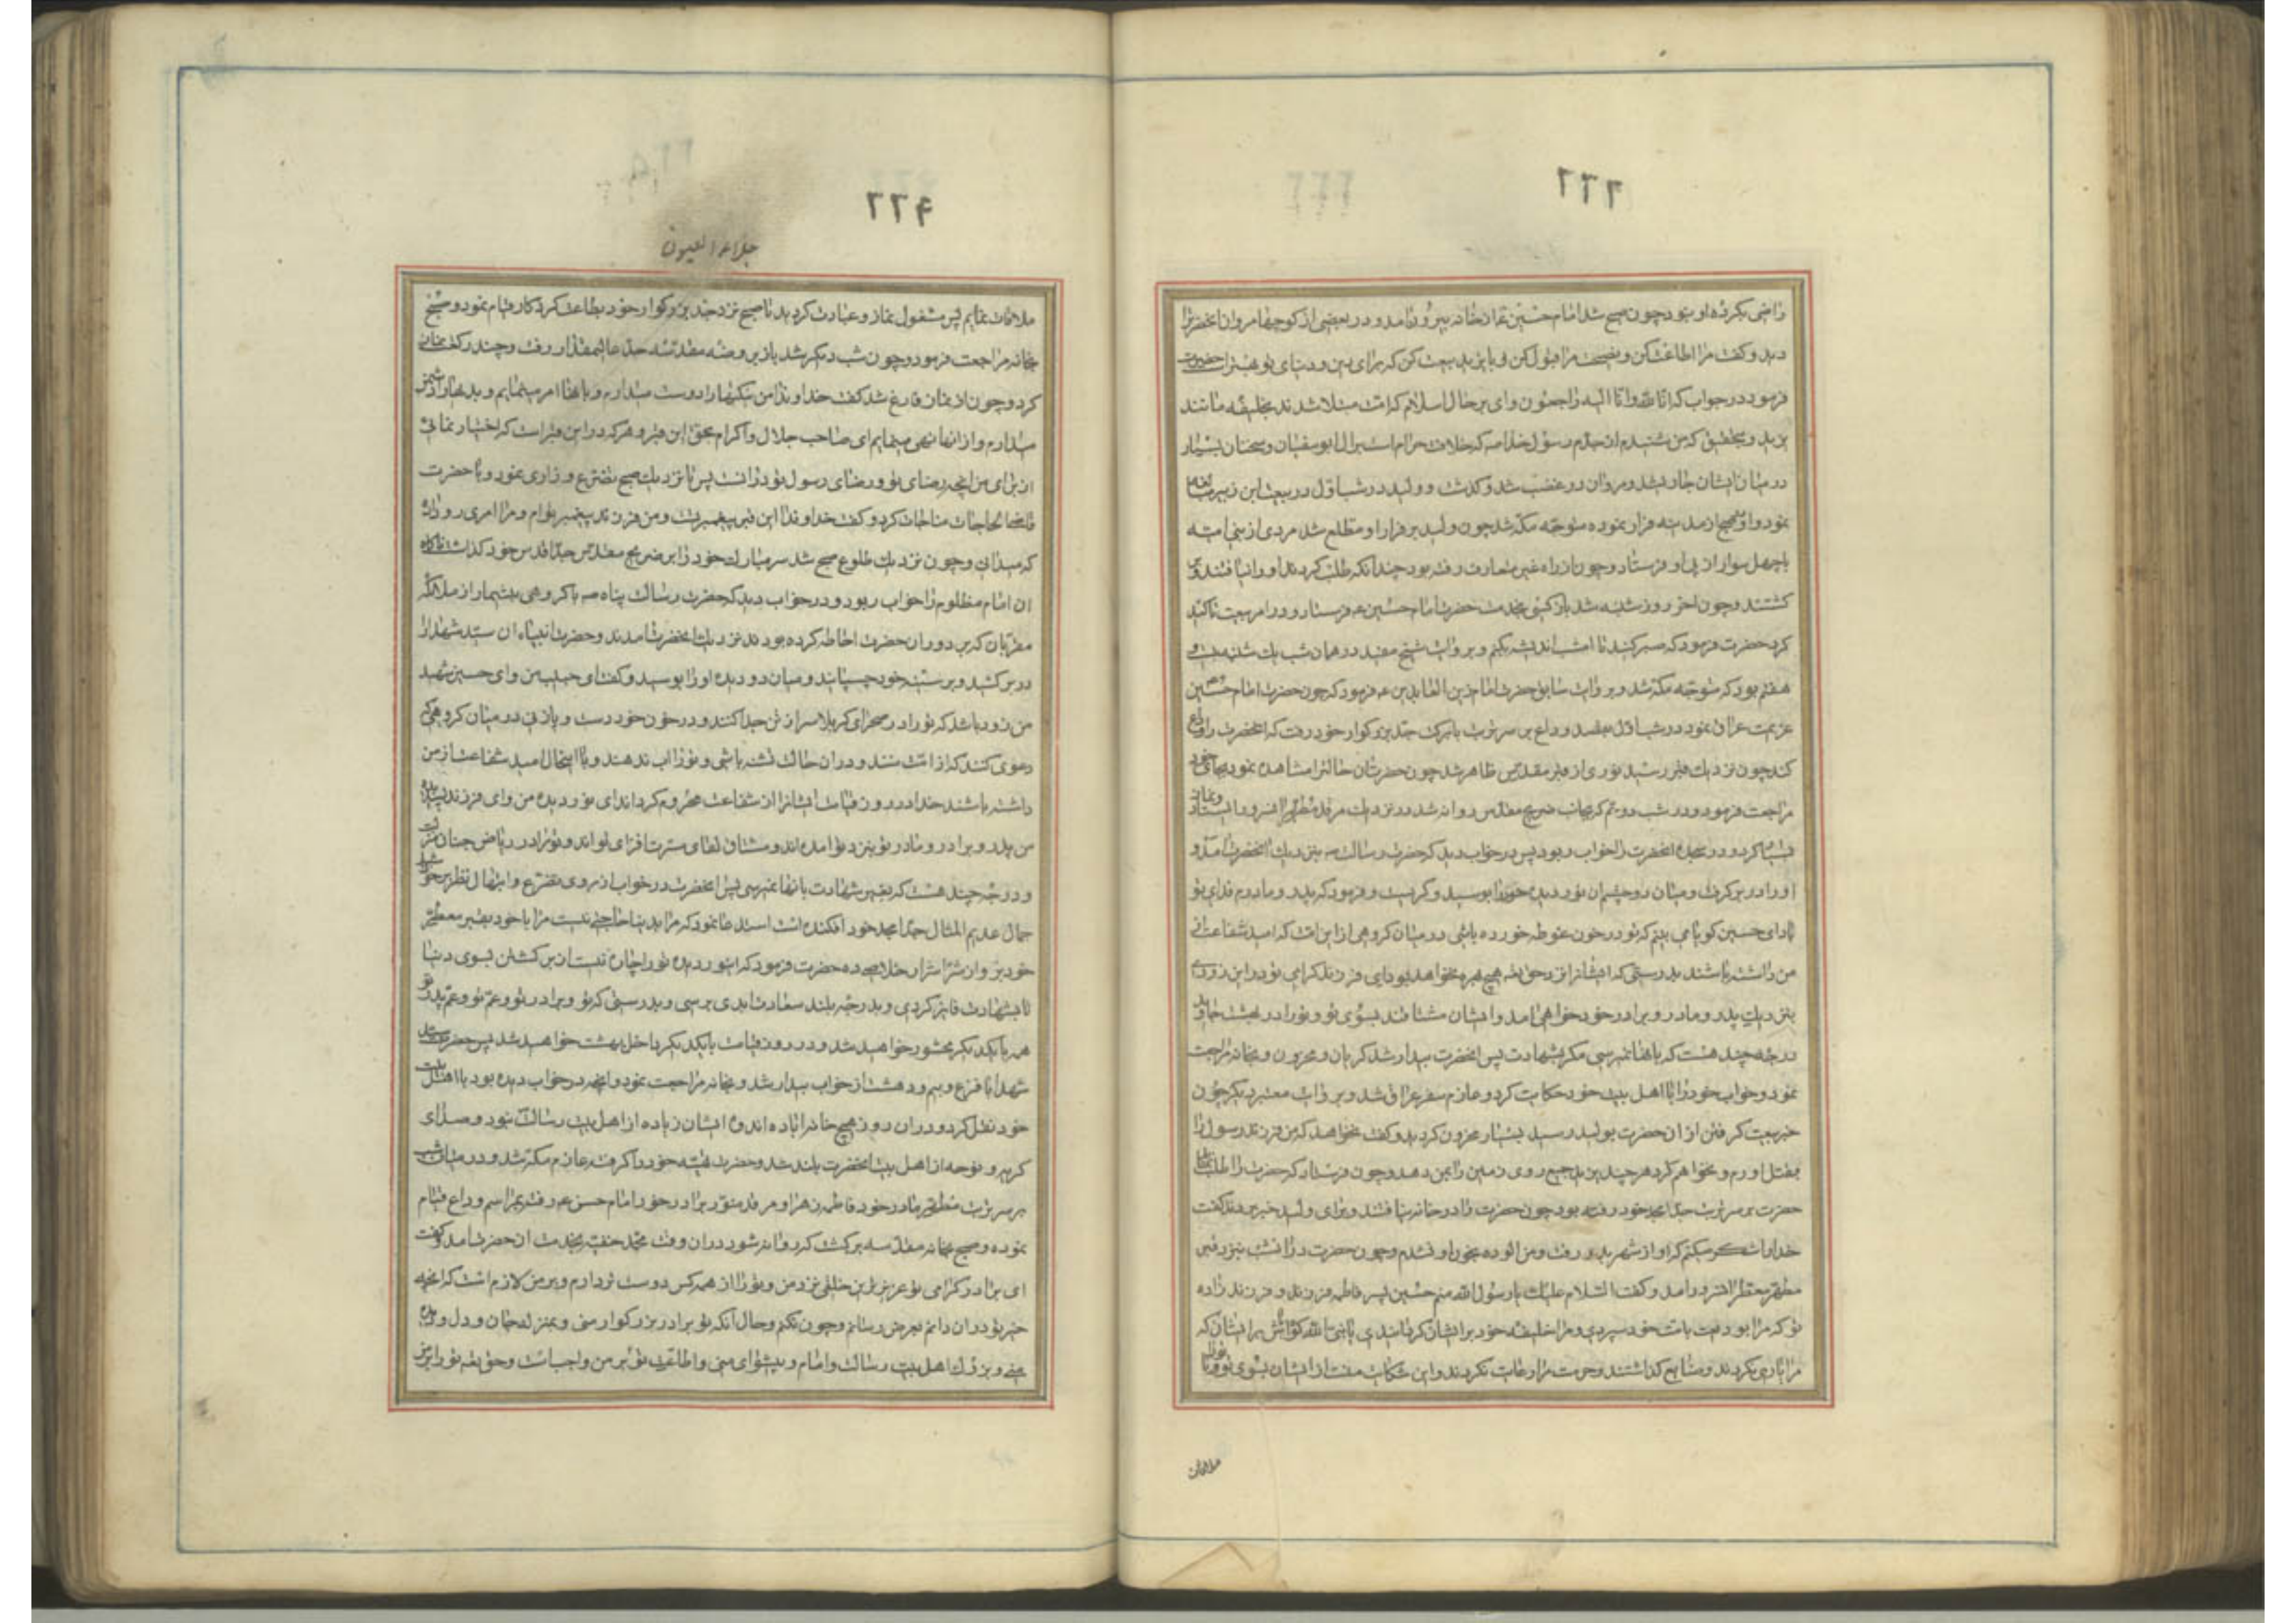 ۲۲۶
راضی بکرده او نبود چون صبح شد امام حسین ع از خانه بیرون آمد و در بعضی از کوچها مروان انحضرترا
دید و کفت مرا اطاعت کن و نصیحت مرا قبول کن و با یزید بیعت کن که برای دین و دنیای تو بهتر است حضرت
فرمود در جواب که انا لله وانا الیه راجعون وای بر حال اسلام که امت مبتلا شدند بخلیفه مانند
یزید و بتحقیق که من شنیدم از جدم رسول خدا ص که خلافت حرام است بر ال ابو سفیان و سخنان بسیار
در میان ایشان جاری شد و مروان در غضب شد و کذشت و ولید در شب اول در بیعت ابن زبیر
نمود و او صبح از مدینه فرار نموده متوجه مکه شد چون ولید بر فرار او مطلع شد مردی از بنی امیه
با چهل سوار از پی او فرستاد و چون از راه غیر متعارف رفته بود چندانکه طلب کردند او را نیافتند و بر
کشتند و چون اخر روز شنبه شد باز کسی بخدمت حضرت امام حسین ع فرستاد و در امر بیعت تاکید
کرد حضرت فرمود که صبر کنید تا امشب اندیشه بکنم و بروایت شیخ مفید در همان شب یک شنبه بیست و
هفتم بود که متوجه مکه شد و بروایت سابق حضرت امام زین العابدین ع فرمود که چون حضرت امام حسین
عزیمت عراق نمود در شب اول بقصد وداع بر سر تربت با برکت جد بزرکوار خود رفت که انحضرت را وداع
کند چون نزدیک قبر رسید نوری از قبر مقدس ظاهر شد چون حضرت ان حالترا مشاهده نمود بجای خود
مراجعت فرمود و در شب دوم که بجانب ضریح مقدس روانه شد در نزدیک مرقد مطهر انسرور ایستاد و نماز
بسیار کرد و در سجده انحضرت را خواب ربود پس در خواب دید که حضرت رسالت ص بنزدیک انحضرت امد و
او را در بر کرفت و میان دو چشم ان نور دیده خود را بوسید و کریست و فرمود که پدر و مادرم فدای تو
باد ای حسین کویا می بینم که تو در خون غوطه خورده باشی در میان کروهی از این امت که امید شفاعت از
من داشته باشند بدرستی که ایشانرا نزد حق تعالی هیچ بهره نخواهد بود ای فرزند کرامی تو در این زودی
بنزدیک پدر و مادر و برادر خود خواهی امد و ایشان مشتاقند بسوی تو و تو را در بهشت جاوید
درجه چند هست که بانها نمیرسی مکر بشهادت پس انحضرت بیدار شد کریان و محزون و بخانه مراجعت
نمود و خواب خود را با اهل بیت خود حکایت کرد و عازم سفر عراق شد و بروایت معتبر دیکر چون
خبر بیعت کرفتن از ان حضرت بولید رسید بسیار محزون کردید و کفت نخواهد که من فرزند رسول را
بقتل اورم و نخواهم کرد هر چند یزید جمیع روی زمین را بمن دهد و چون فرستاد که حضرت را طلب نماید
حضرت بر سر تربت جد امجد خود رفته بود چون حضرت را در خانه نیافتند و برای ولید خبر بردند کفت
خدا را شکر میکنم که او از شهر بدر رفت و من الوده بخون او نشدم و چون حضرت در انشب بنزد قبر
مطهر معطر انسرور امد و کفت السلام علیک یا رسول الله منم حسین پسر فاطمه فرزند و فرزند زاده
تو که مرا بودیعت بامت خود سپردی و مرا خلیفه خود بر ایشان کردانیدی یا نبی الله کواه باش بر ایشان که
مرا یاری نکردند و ضایع کذاشتند و حرمت مرا رعایت نکردند و این شکایت منست از ایشان بسوی تو تا تو را
ملاقات
۲۲۴
جلاء العیون
ملاقات نمایم پس مشغول نماز و عبادت کردید تا صبح نزد جد بزرکوار خود بطاعت کردکار قیام نمود و صبح
بخانه مراجعت فرمود و چون شب دیکر شد باز بروضه مقدسه جد عالیمقدار رفت و چند رکعت نماز
کرد و چون از نماز فارغ شد کفت خداوندا من نیکیها را دوست میدارم و بانها امر مینمایم و بدیها را دشمن
میدارم و از انها نهی مینمایم ای صاحب جلال و اکرام بحق این قبر و هر که در این قبر است که اختیار نمائی
از برای من انچه رضای تو و رضای رسول تو در انست پس تا نزدیک صبح تضرع و زاری نمود و با حضرت
قاضی الحاجات مناجات کرد و کفت خداوندا این قبر پیغمبر تست و من فرزند پیغمبر توام و مرا امری رو داده
که میدانی و چون نزدیک طلوع صبح شد سر مبارک خود را بر ضریح مقدس جد اقدس خود کذاشت ناکاه
ان امام مظلوم را خواب ربود و در خواب دید که حضرت رسالت پناه ص با کروهی بیشمار از ملائکه
مقربان که بر دور ان حضرت احاطه کرده بودند نزدیک انحضرت امدند و حضرت انبیاء ان سید شهدا را
در بر کشید و بر سینه خود چسپانید و میان دو دیده او را بوسید و کفت ای حبیب من وای حسین شهید
من زود باشد که تو را در صحرای کربلا سر از تن جدا کنند و در خون خود دست و پا زنی در میان کروهی که
دعوی کنند که از امت منند و در ان حالت تشنه باشی و تو را اب ندهند و با اینحال امید شفاعت از من
داشته باشند خدا در روز قیامت ایشانرا از شفاعت محروم کرداند ای نور دیده من وای فرزند پسندیده
من پدر و برادر و مادر تو بنزد تو امده اند و مشتاق لقای مسرت افزای تو اند و تو را در ریاض جنان منزلت
و درجه چند هست که بغیر شهادت بانها نمیرسی پس انحضرت در خواب از روی تضرع و ابتهال نظر بر خورشید
جمال عدیم المثال جد امجد خود افکنده است استدعا نمود که مرا بدنیا حاجتی نیست مرا با خود بقبر معطر
خود بر و از شر اشرار خلاصی ده حضرت فرمود که ای نور دیده تو را چاره نیست از برکشتن بسوی دنیا
تا بشهادت فایز کردی و بدرجه بلند سعادت ابدی برسی و بدرستی که تو و برادر تو و عم تو و عم پدر تو
همه با یکدیکر محشور خواهید شد و در روز قیامت با یکدیکر داخل بهشت خواهید شد پس حضرت سید
شهدا با فزع و بیم و دهشت از خواب بیدار شد و بخانه مراجعت نمود و انچه در خواب دیده بود با اهل بیت
خود نقل کرد و در ان روز هیچ خانه اباده اندوه ایشان زیاده از اهل بیت رسالت نبود و صدای
کریه و نوحه از اهل بیت انحضرت بلند شد و حضرت تهیه خود را کرفته عازم مکه شد و در میان شب
بر سر تربت مطهر مادر خود فاطمه زهرا و مرقد منور برادر خود امام حسن ع رفت بمراسم وداع قیام
نموده و صبح بخانه مقدسه برکشت که روانه شود در ان وقت محمد حنفیه بخدمت ان حضرت امد و کفت
ای برادر کرامی تو عزیزترین خلقی نزد من و تو را از همه کس دوست تر دارم و بر من لازم است که انچه
خیر تو در ان دانم بعرض رسانم و چون نکنم و حال انکه تو برادر بزرکوار منی و بمنزله جان و دل و دیده
منی و بزرک اهل بیت رسالت و امام و پیشوای منی و اطاعت تو بر من واجب است و حق تعالی تو را بر من